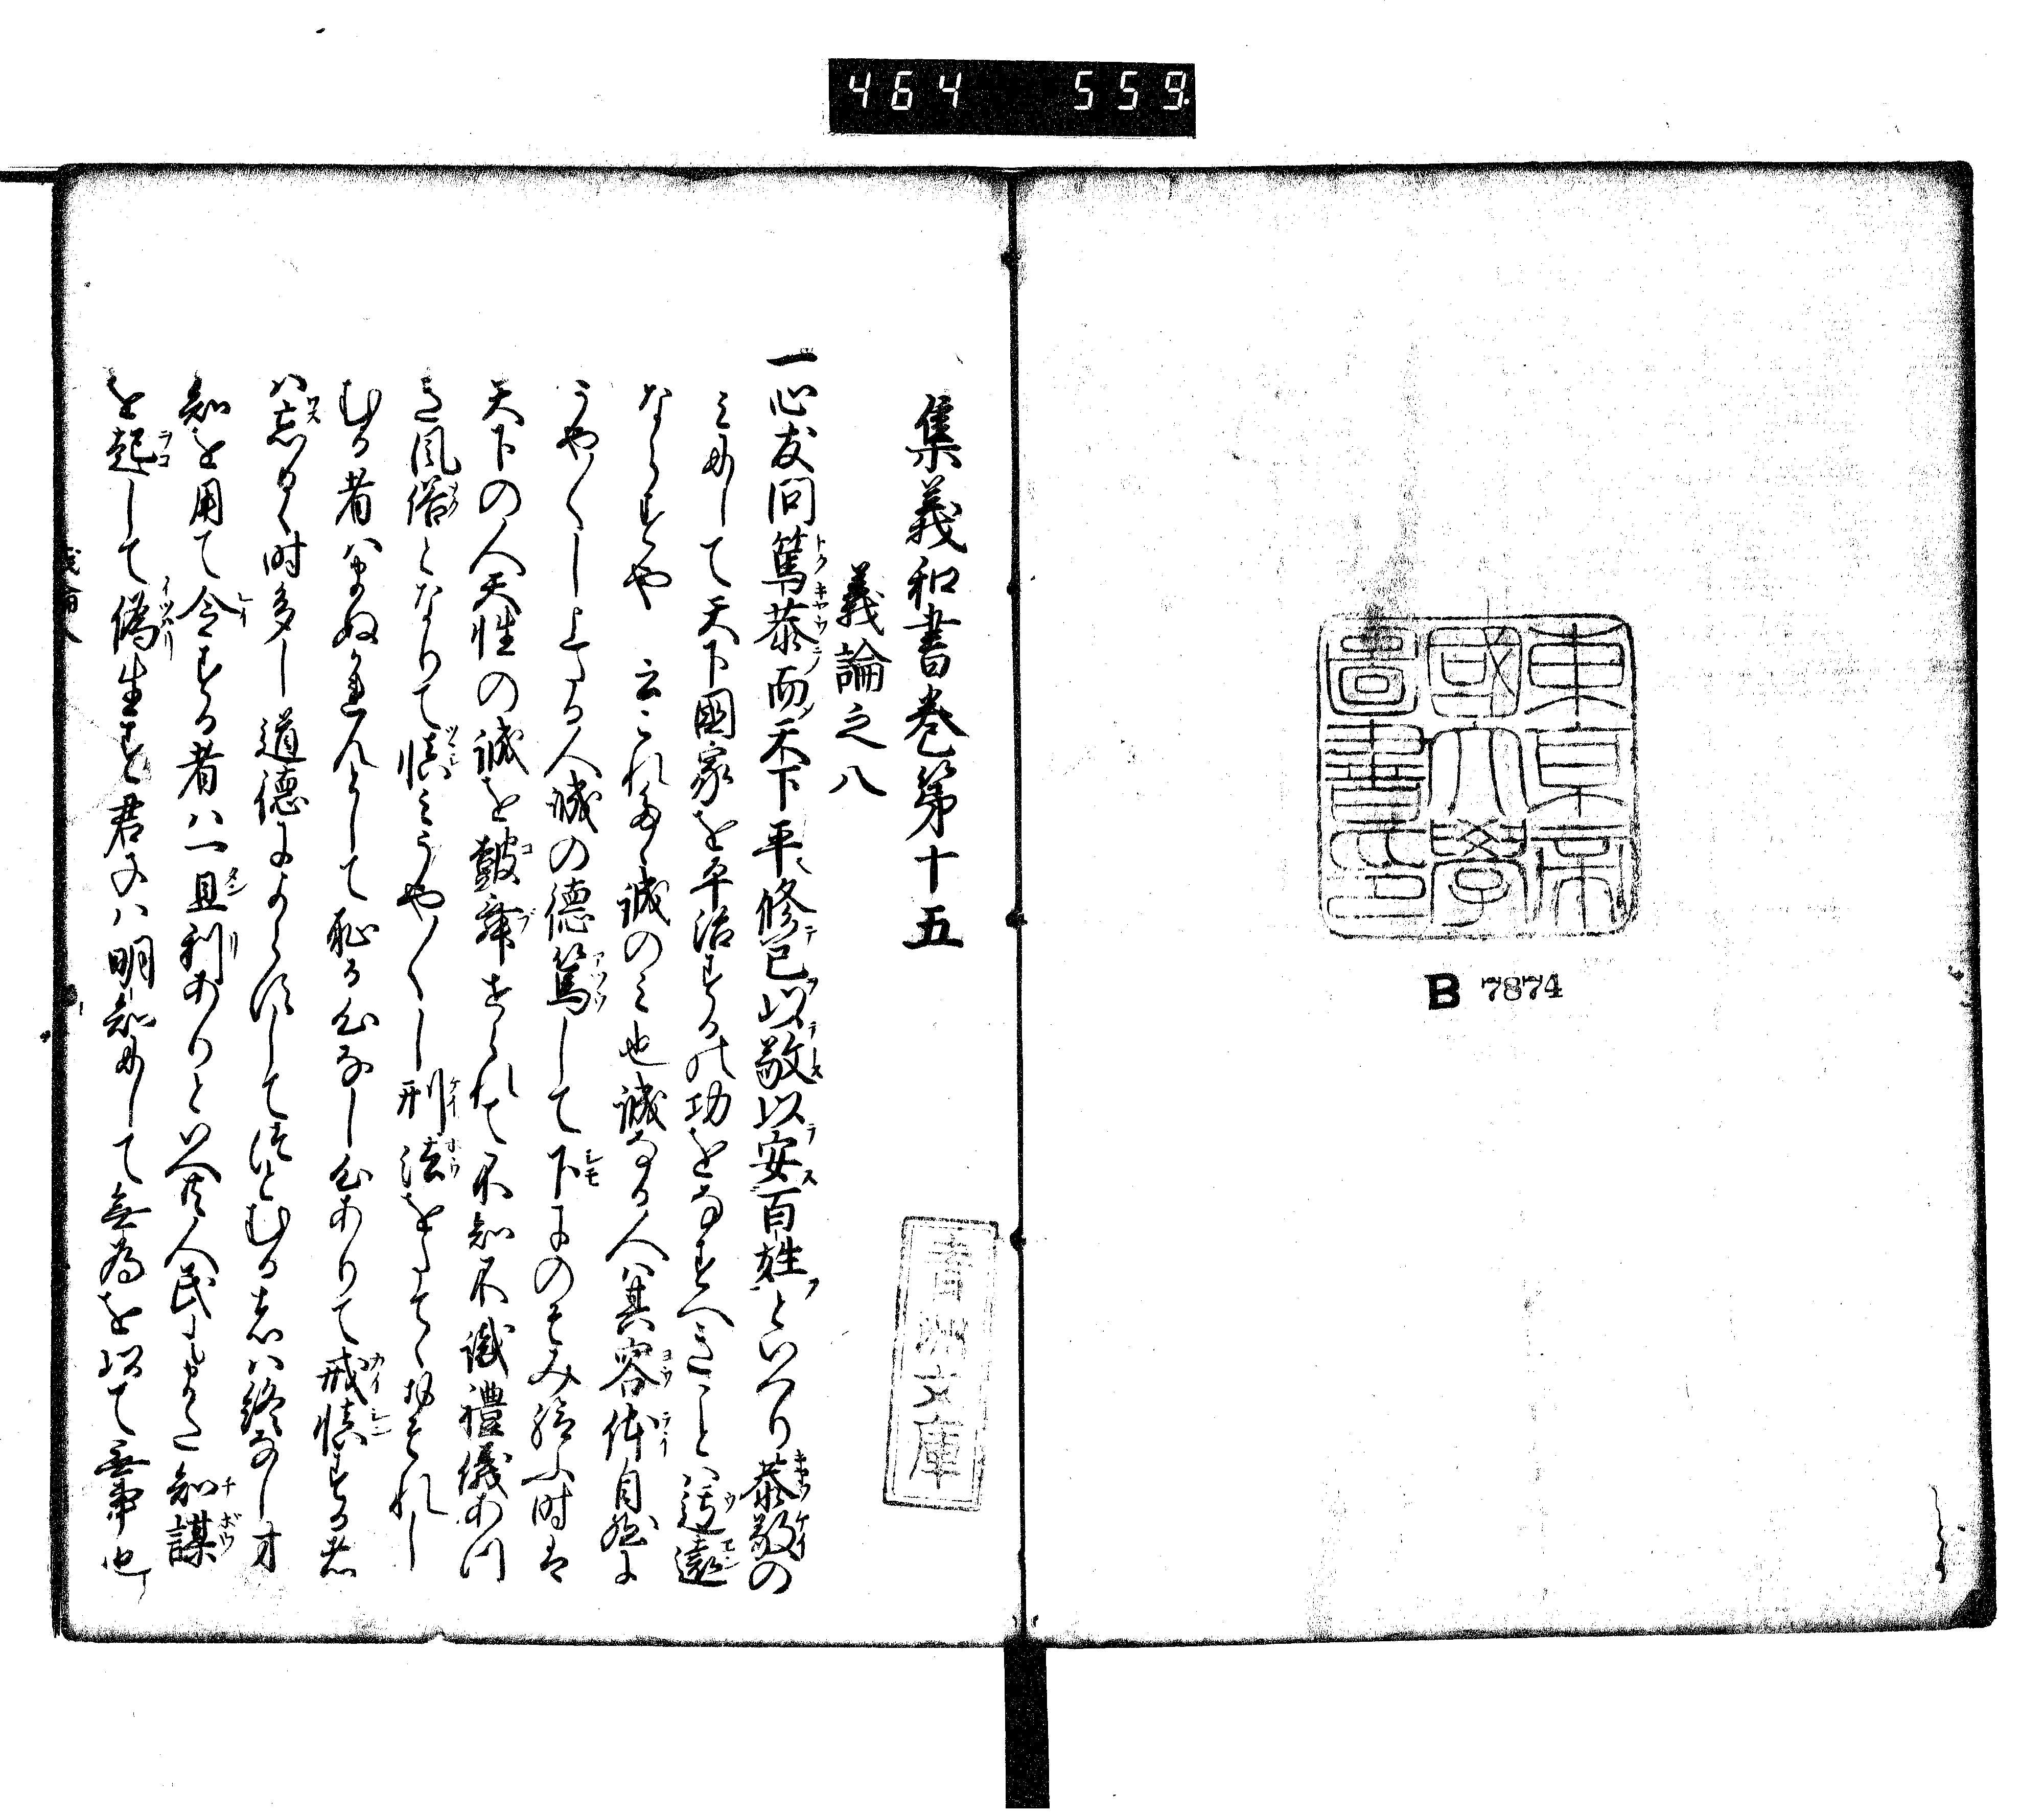 464 559
東京帝
國大學
圖書印
B 7874
青洲文庫
集義和書巻第十五
義論之八
一心友問篤恭而天下平修己以敬以安百姓といへり恭敬の
みにして天下國家を平治するの功をなすべきことハ迂遠
ならずや 云これ多ゝ誠のミ也誠なる人ハ其容体自然に
うや〱し上たる人誠の德篤して下にのぞみ給ふ時は
天下の人天性の誠を鼓舞せられて不知不識禮儀あつ
き風俗となりて慎ミうや〱し刑法をたてゝおそれし
むる者ハまぬかれんとして恥る心なし心ありて戒慎する者
ハ忘るゝ時多し道德によらずしてつとむる者ハ終なし才
知を用て令する者ハ一旦利ありといへ共人民もまた知謀
を起して偽生ず君子ハ明知にして無為を以て無事也